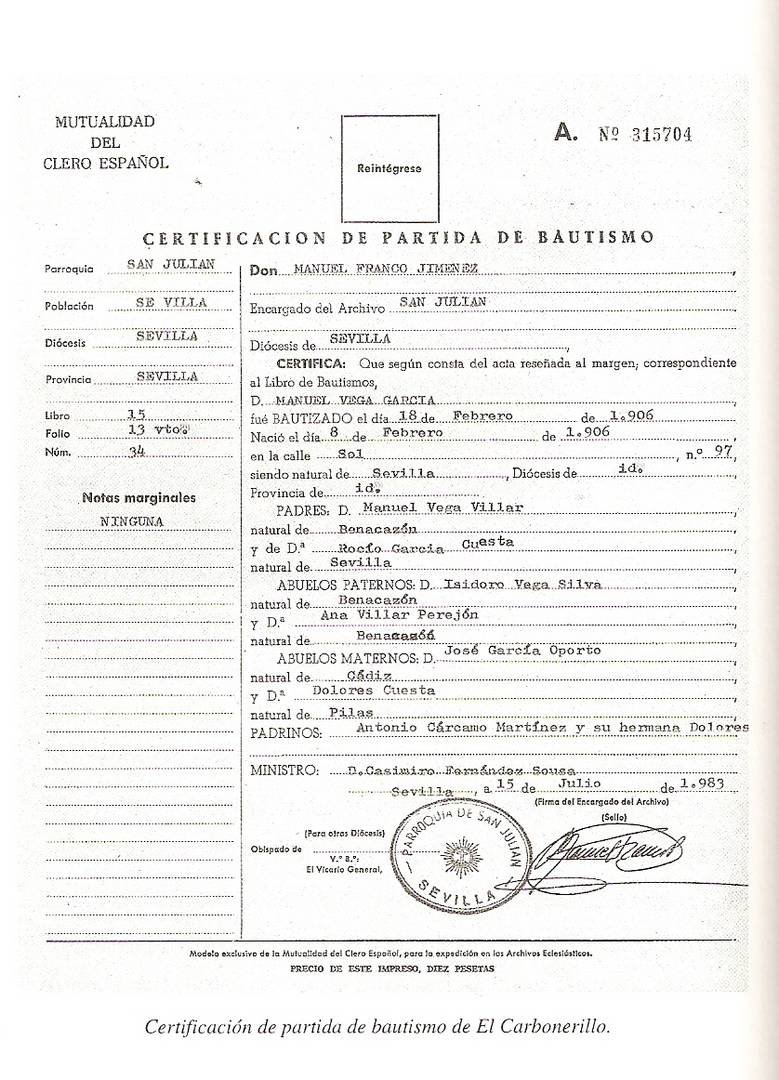 MUTUALIDAD
DEL
CLERO ESPAÑOL
Reintégrese
A. Nº 315704
CERTIFICACION DE PARTIDA DE BAUTISMO
Parroquia SAN JULIAN
Población SE VILLA
Diócesis SEVILLA
Provincia SEVILLA
Libro 15
Folio 13 vtoº
Núm. 34
Notas marginales
NINGUNA
Don MANUEL FRANCO JIMENEZ,
Encargado del Archivo SAN JULIAN
Diócesis de SEVILLA,
CERTIFICA: Que según consta del acta reseñada al margen, correspondiente
al Libro de Bautismos,
D. MANUEL VEGA GARCIA,
fué BAUTIZADO el día 18 de Febrero de 1.906
Nació el día 8 de Febrero de 1.906,
en la calle Sol, n.º 97,
siendo natural de Sevilla, Diócesis de id.
Provincia de id.
PADRES: D. Manuel Vega Villar
natural de Benacazón,
y de D.ª Rocío Garcia Cuesta,
natural de Sevilla,
ABUELOS PATERNOS: D. Isidoro Vega Silva,
natural de Benacazón,
y D.ª Ana Villar Perejón,
natural de Benacazón,
ABUELOS MATERNOS: D. José García Oporto,
natural de Cádiz,
y D.ª Dolores Cuesta,
natural de Pilas,
PADRINOS: Antonio Cárcamo Martínez y su hermana Dolores
MINISTRO: D. Casimiro Fernández Sousa
Sevilla, a 15 de Julio de 1.983
(Firma del Encargado del Archivo)
(Sello)
(Para otras Diócesis)
Obispado de
V.º B.º:
El Vicario General,
PARROQUIA DE SAN JULIAN
SEVILLA
Manuel Franco
Modelo exclusivo de la Mutualidad del Clero Español, para la expedición en los Archivos Eclesiásticos.
PRECIO DE ESTE IMPRESO, DIEZ PESETAS
Certificación de partida de bautismo de El Carbonerillo.